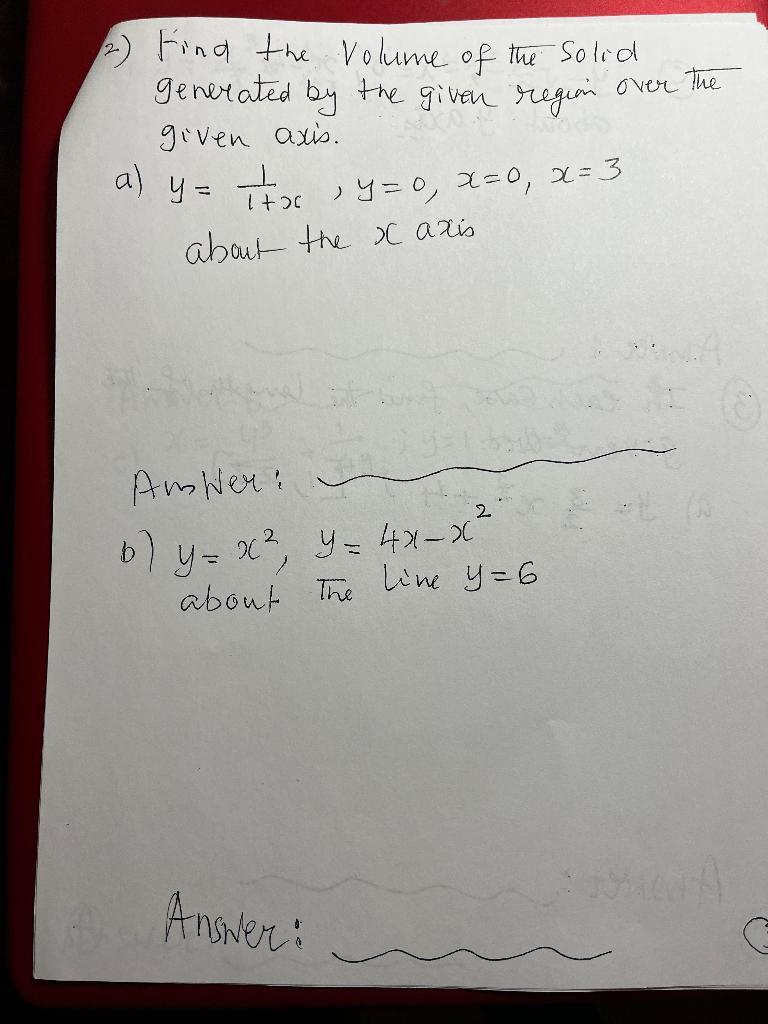 2) Find the Volume of the Solid
generated by the given region over the
given axis.
a) y = 1/(1+x) , y=0, x=0, x=3
about the x axis
Answer:
b) y = x², y = 4x-x²
about The line y=6
Answer: